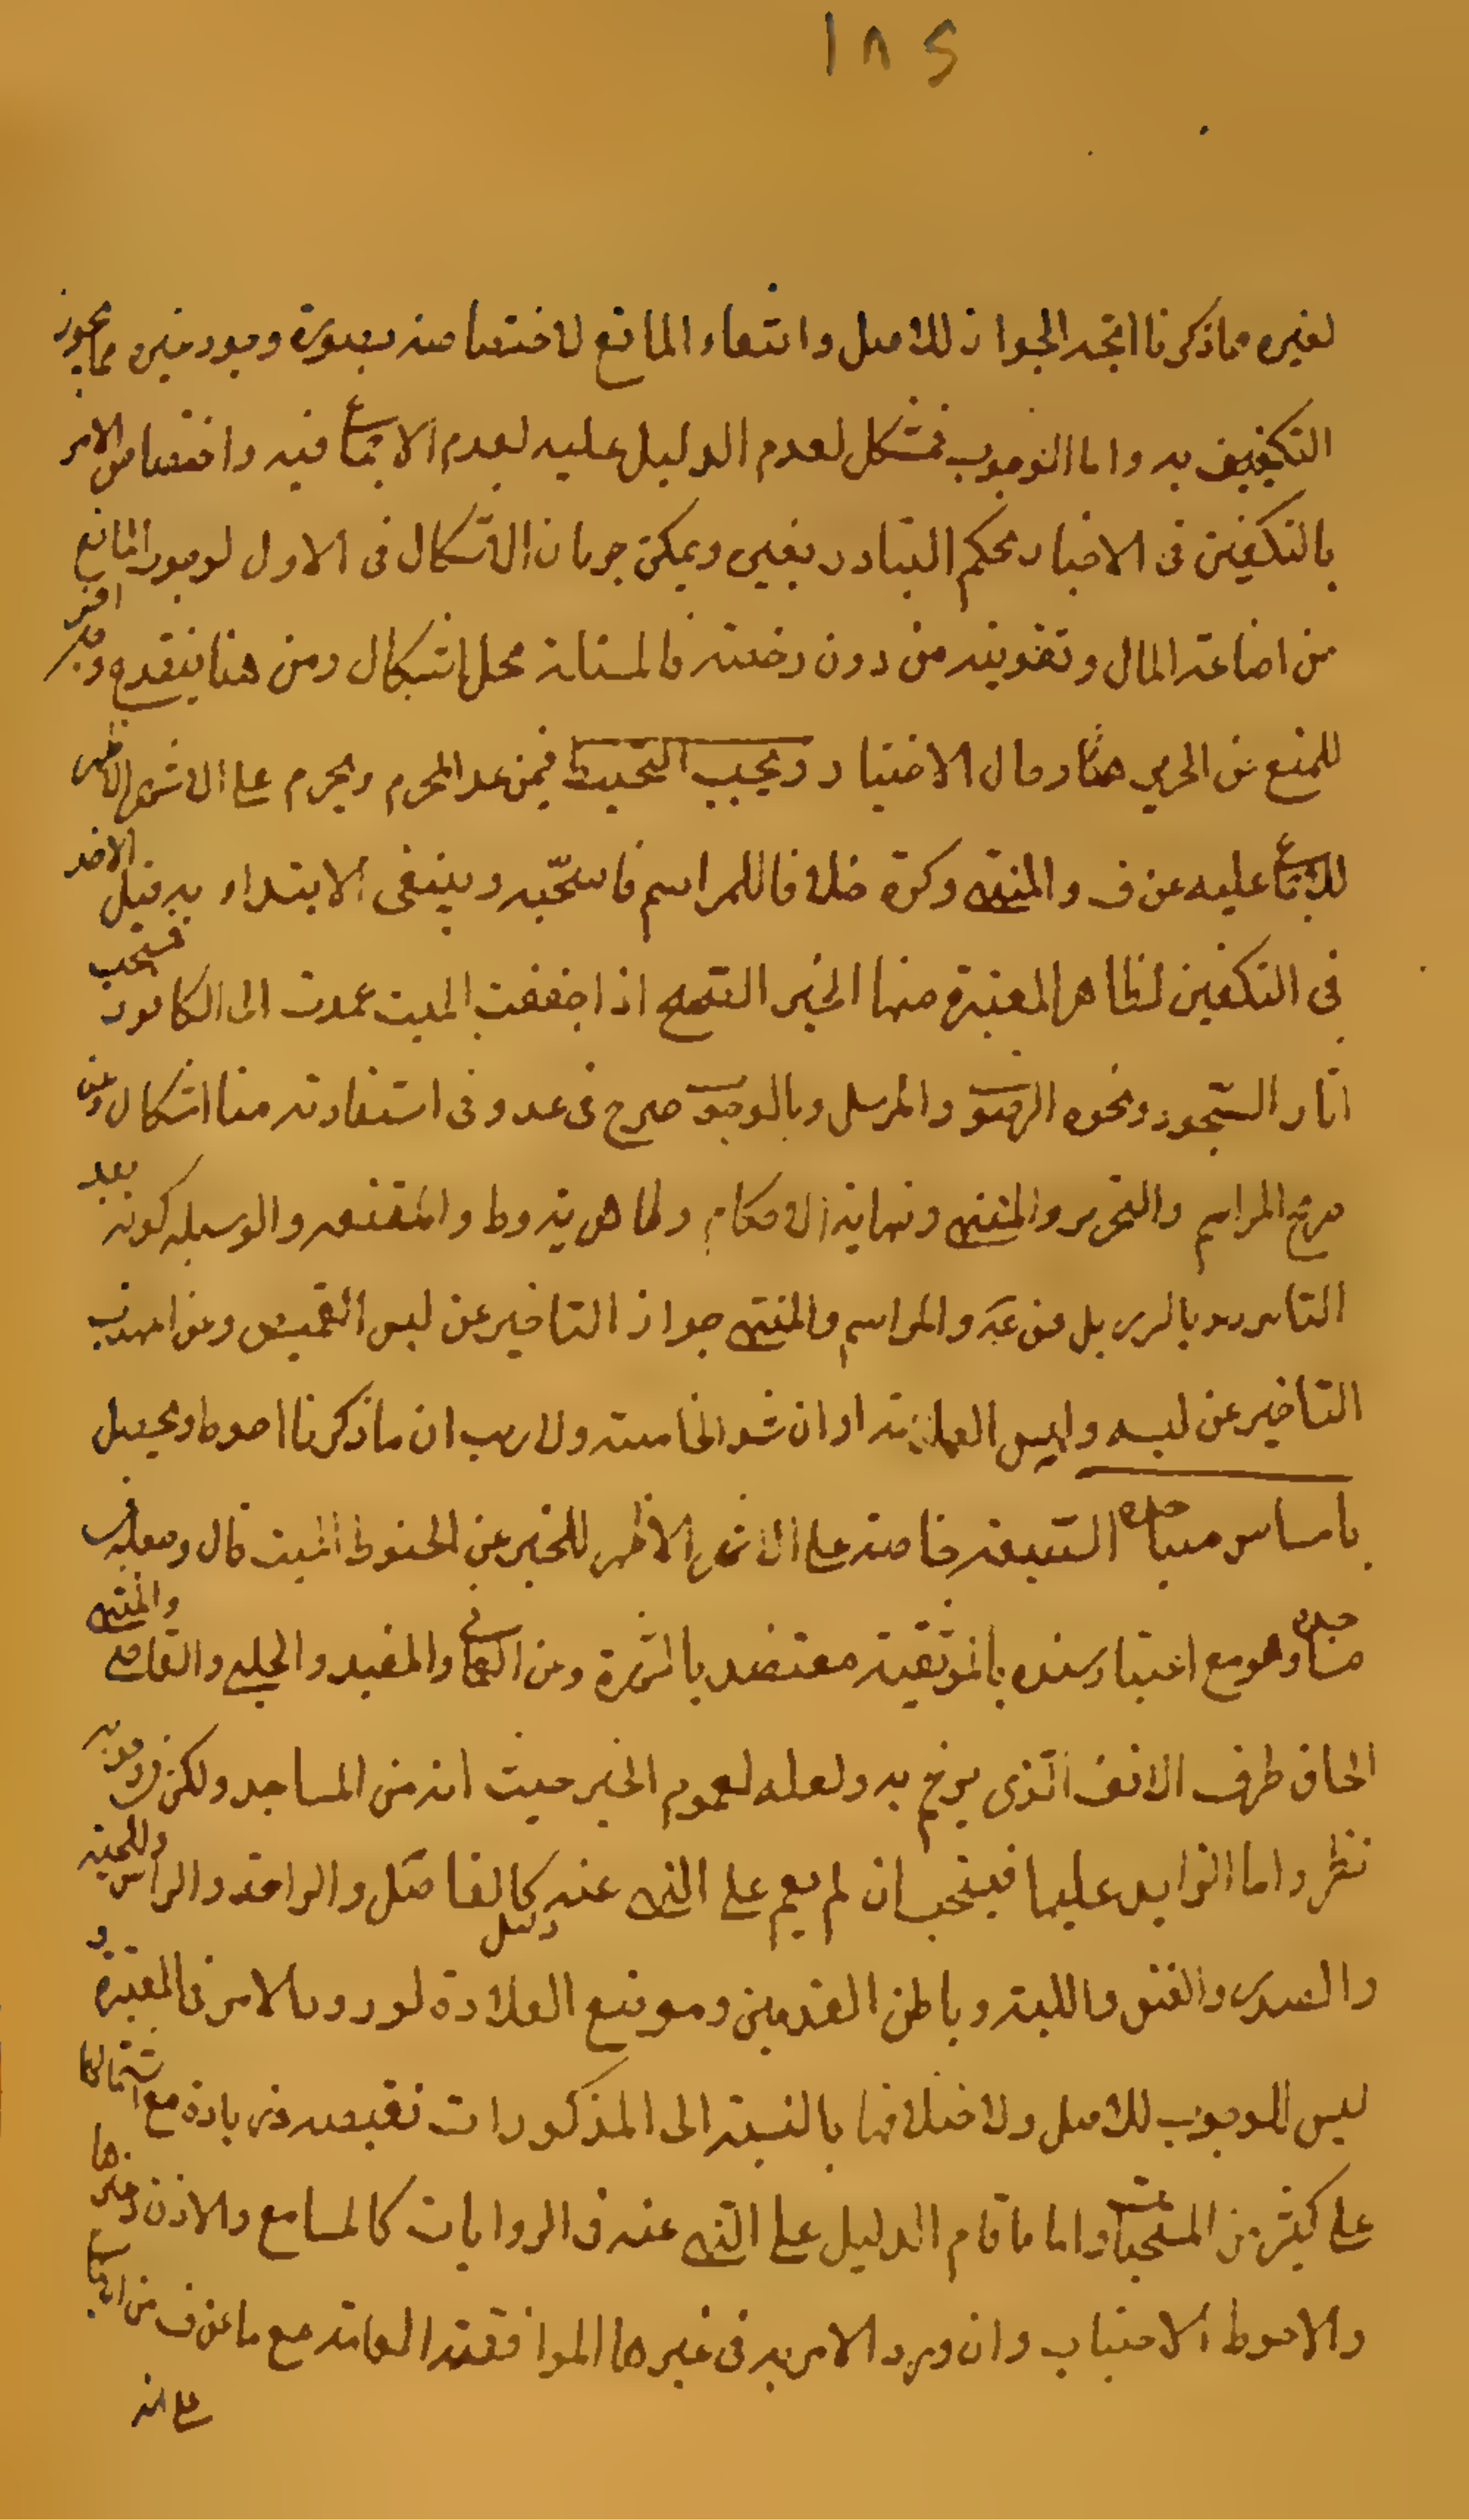 ١٨٥
لغيره مما ذكرنا اتجه الجواز للاصل وانتفاء المانع لاختصاصه بصورة وجود غيره مما يجوز
التكفين به واما الوجوب فمشكل لعدم الدليل عليه لعدم الاجماع فيه واختصاص الامر
بالتكفين فى الاخبار بحكم التبادر بغيره ويمكن جريان الاشكال فى الاول لوجود المانع
من اضاعة المال وتفويته من دون رخصة فالمسئلة محل اشكال ومن هنا ينقدح وجه اخر
للمنع عن الحرير هنا وحال الاختيار ويجب التحنيط فيمن عدا المحرم ويحرم على الاشهر الاظهر
للاجماع عليه عن ف والمنتهى وكره خلافا للمراسم فاستحبه وينبغى الابتداء به قبل الاخذ
فى التكفين لظاهر المعتبرة منها الخبر الصحيح اذا جففت الميت عمدت الى الكافور فمسحت به
اثار السجود ونحوه الرضوى والمرسل وبالوجوب صرح فى عد وفى استفادته منها اشكال وعن
صريح المراسم والتحرير والمنتهى ونهاية الاحكام وظاهر يه وط والمقنعه والوسيله كونه بعد
التأزير بالمئزر بل عن كره والمراسم والمنتهى جواز التاخير عن لبس القميص وعن المهذب
التاخير عن لبسه ولبس العمامة او ان شد الخامسة ولا ريب ان ما ذكرنا احوط ويحصل
بامساس مساجده السبعة خاصة على الاشهر الاظهر للخبر عن الحنوط للميت قال اجعله فى
مساجده وهو مع اعتبار سنده بالموثقية معتضد بالشهرة وعن العمانى والمفيد والحلبى والقاضى والمنتهى
الحاق طرف الانف الذى يرغم به ولعله لعموم الخبر حيث انه من المساجد ولكن فى دخوله
نظر واما الزايد عليها فيستحب ان لم يقم على النهى عنه دليل كالمفاصل والراحة والراس واللحية
والصدر والعنق واللبة وباطن القدمين وموضع القلادة لورود الامر فى المعتبرة و
ليس للوجوب للاصل ولاختلافها بالنسبة الى المذكورات نقيصه وزيادة مع اشتمالها
على كثير من المستحبات واما ما قام الدليل على النهى عنه فى الروايات كالمسامع والاذن وغيرها
والاحوط الاجتناب وان ورد الامر به فى غيرها الموافقة العامة مع ما عن ف من الاجماع
على انه